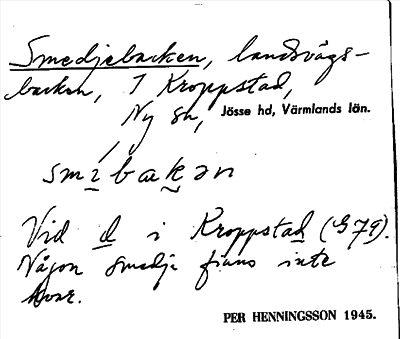 Smedjebacken, landsvägs-
backen, I Kroppstad,
Ny sn, Jösse hd, Värmlands län.
smìbakən
Vid d i Kroppstad (G79).
Någon smedja finns inte
kvar.
PER HENNINGSSON 1945.